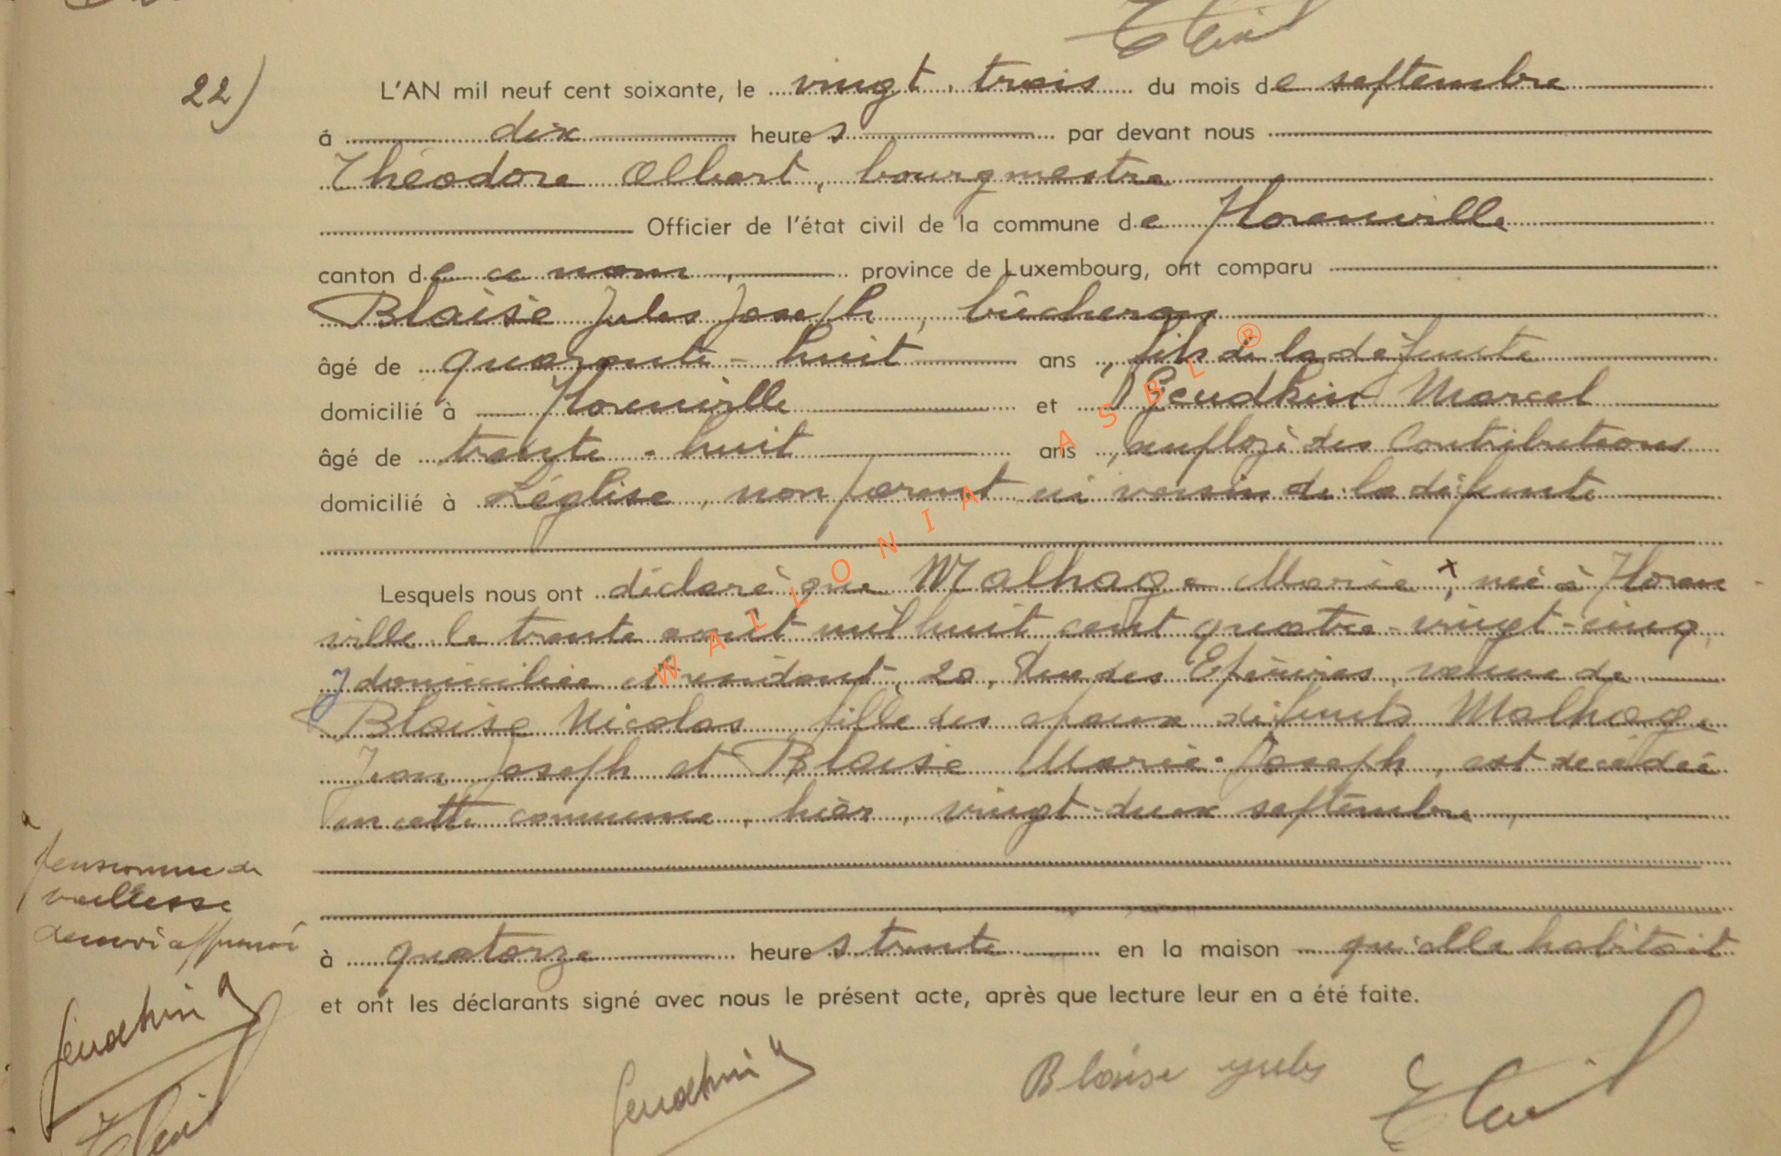 22)
L'AN mil neuf cent soixante, le vingt-trois du mois de septembre
à dix heures par devant nous
Théodore Albert, bourgmestre
Officier de l'état civil de la commune de Florenville
canton de ce nom, province de Luxembourg, ont comparu
Blaise Jules Joseph, bûcheron
âgé de quarante-huit ans, fils de la défunte
domicilié à Florenville et Geudhin Marcel
âgé de trente-huit ans, employé des Contributions
domicilié à Léglise, non parent ni voisin de la défunte
Lesquels nous ont déclaré que Malhage Marie x, née à Floren-
ville le trente août mil huit cent quatre-vingt-cinq,
y domiciliée et résidant, 20, Rue des Epinives, veuve de
Blaise Nicolas, fille des époux défunts Malhage
Jean Joseph et Blaise Marie-Joseph, est décédée
en cette commune, hier, vingt-deux septembre,
pensionnée de
vieillesse
renvoi approuvé
à quatorze heures trente en la maison qu'elle habitait
et ont les déclarants signé avec nous le présent acte, après que lecture leur en a été faite.
Geudhin
Geudhin
Blaise Jules
WALLONIA ASBL ®